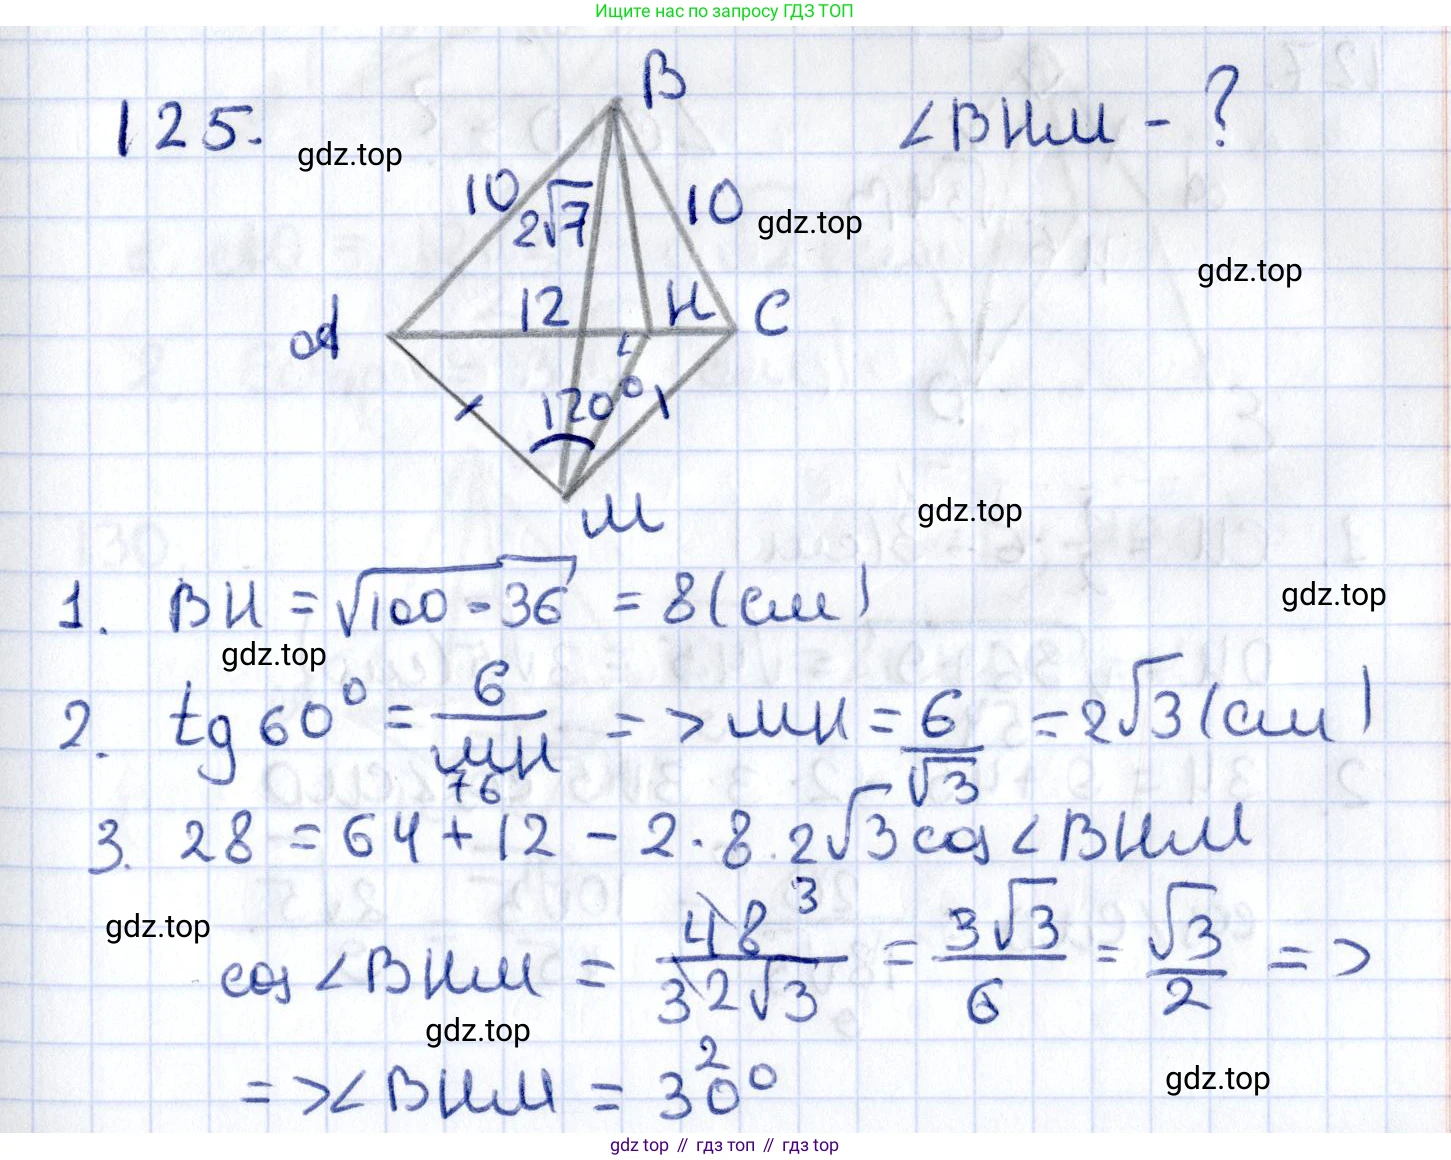 Ищите нас по запросу ГДЗ ТОП
125.
B
∠BHM - ?
gdz.top
10
2√7
10
gdz.top
gdz.top
A
12
H
C
120°
M
gdz.top
1. BH = √100 - 36 = 8 (см)
gdz.top
gdz.top
2. tg 60° = 6/MH => MH = 6/√3 = 2√3 (см)
76
3. 28 = 64 + 12 - 2 · 8 · 2√3 cos ∠BHM
gdz.top
cos ∠BHM = 48 3/32√3 2 = 3√3/6 = √3/2 =>
gdz.top
=> ∠BHM = 30°
gdz.top
gdz top // гдз топ // гдз top